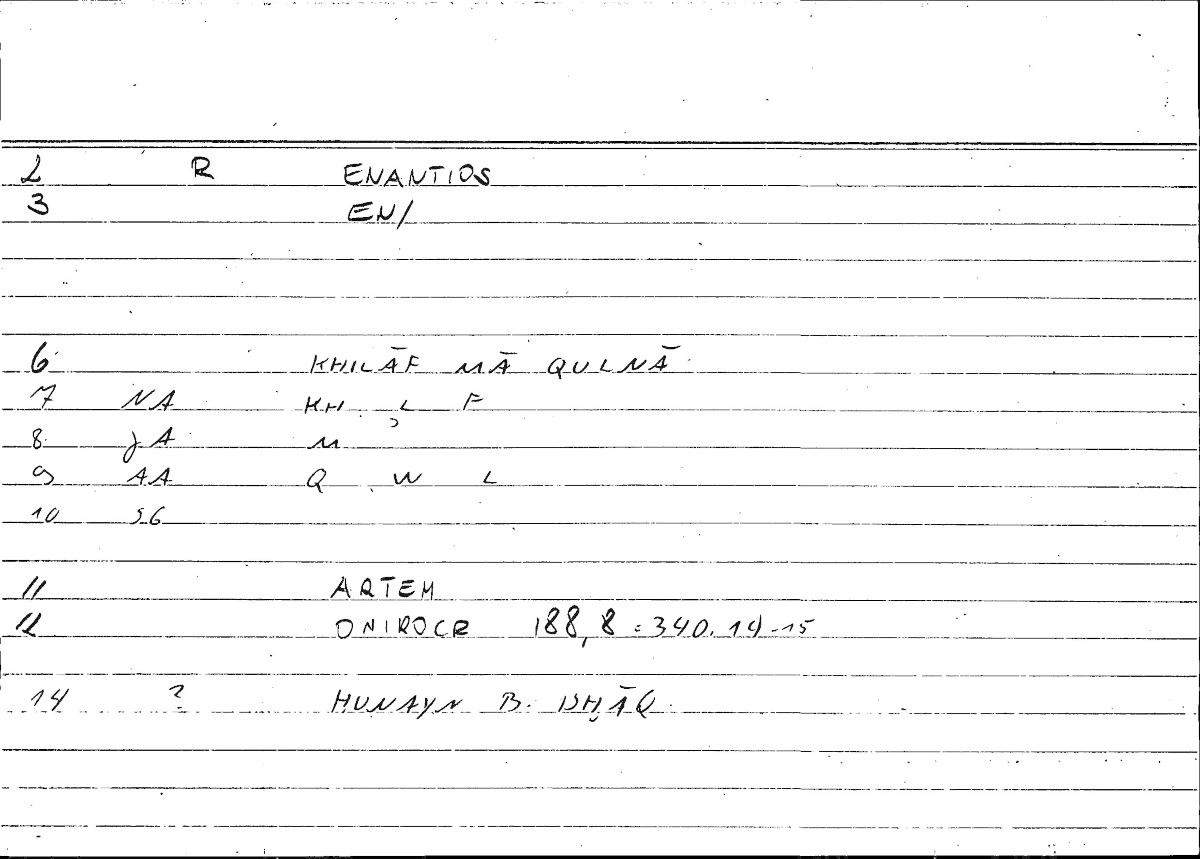 2 R ENANTIOS
3 EN/
6 KHILĀF MĀ QULNĀ
7 NA KH L F
8 JA M
9 AA Q W L
10 SG
11 ARTEM
12 ONIROCR 188,8 = 340.14-15
14 ? HUNAYN B. ISḤĀQ